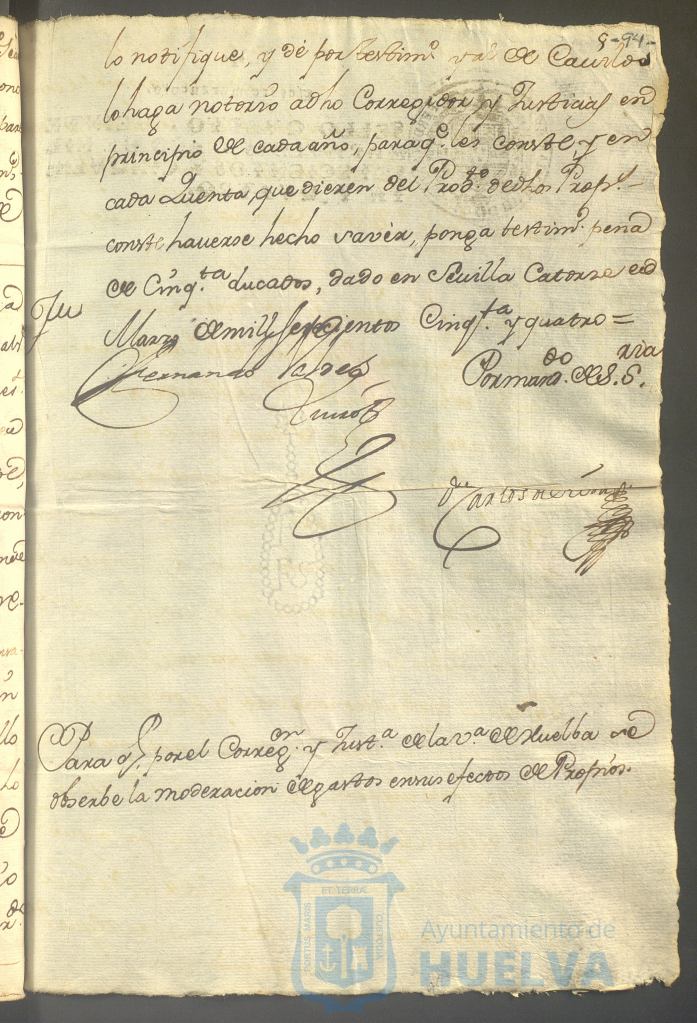 9-94-
lo notifique, y dé por testim.º y a de Cavildo
lo haga notorio a dho Corregidor y Justicias en
principio de cada año, para q.e les conste y en
cada Quenta, que dieren del Prod.to de dhos Prop.s
conste haverse hecho saver, ponga testim.º pena
de Cinq.ta ducados, dado en Sevilla Catorze de
Marzo de mill Setecientos Cinq.ta y quatro =
Fernando Valdes
Quirós
Por man.do de S. S.ria
D.n Carlos de
Para q.e por el Correg.or y Just.a de la v.a de Huelba se
obserbe la moderacion de gastos en sus efectos de Propios.
ET TERRAE
PORTUS MARIS
CUSTODIA
Ayuntamiento de
HUELVA